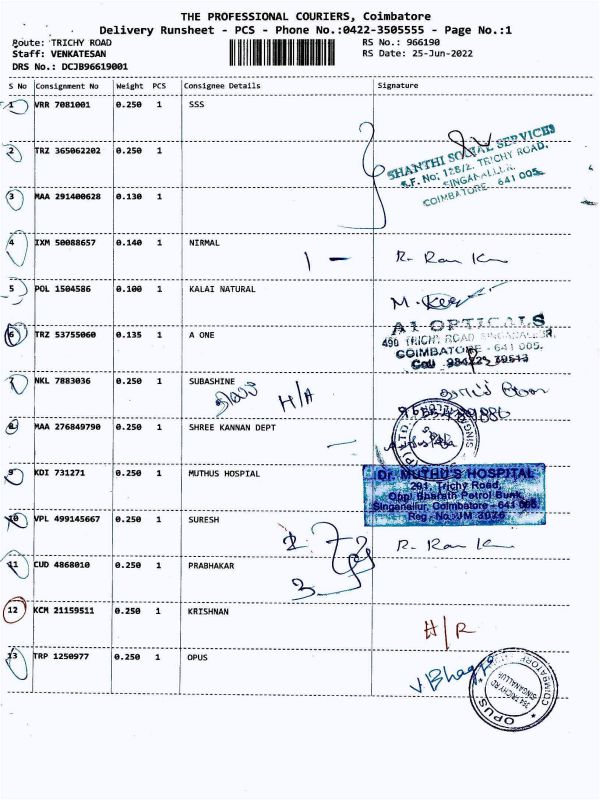 THE PROFESSIONAL COURIERS, Coimbatore
Delivery Runsheet - PCS - Phone No.:0422-3505555 - Page No.:1
Route: TRICHY ROAD RS No.: 966190
Staff: VENKATESAN RS Date: 25-Jun-2022
DRS No.: DCJB96619001
S No Consignment No Weight PCS Consignee Details Signature
1 VRR 7081001 0.250 1 SSS
2 TRZ 365062202 0.250 1
SHANTHI SOCIAL SERVICES
S.F. No: 128/2, TRICHY ROAD,
SINGANALLUR,
COIMBATORE - 641 005.
3 MAA 291400628 0.130 1
4 IXM 50088657 0.140 1 NIRMAL
1 - R. Ram
5 POL 1504586 0.100 1 KALAI NATURAL
M.
6 TRZ 53755060 0.135 1 A ONE
A1 OPTICALS
490 TRICHY ROAD SINGANALLUR,
COIMBATORE - 641 005.
Cell
7 NKL 7883036 0.250 1 SUBASHINE
H/A
8 MAA 276849790 0.250 1 SHREE KANNAN DEPT
9 KDI 731271 0.250 1 MUTHUS HOSPIAL
Dr. MUTHU'S HOSPITAL
291, Trichy Road,
Opp. Bharath Petrol Bunk,
Singanallur, Coimbatore - 641 005.
Reg. No. JM 3026
10 VPL 499145667 0.250 1 SURESH
2. R. Ram
11 CUD 4868010 0.250 1 PRABHAKAR
3
12 KCM 21159511 0.250 1 KRISHNAN
H/R
13 TRP 1250977 0.250 1 OPUS
V Bhagya
OPUS
354 TRICHY RD
SINGANALLUR
COIMBATORE